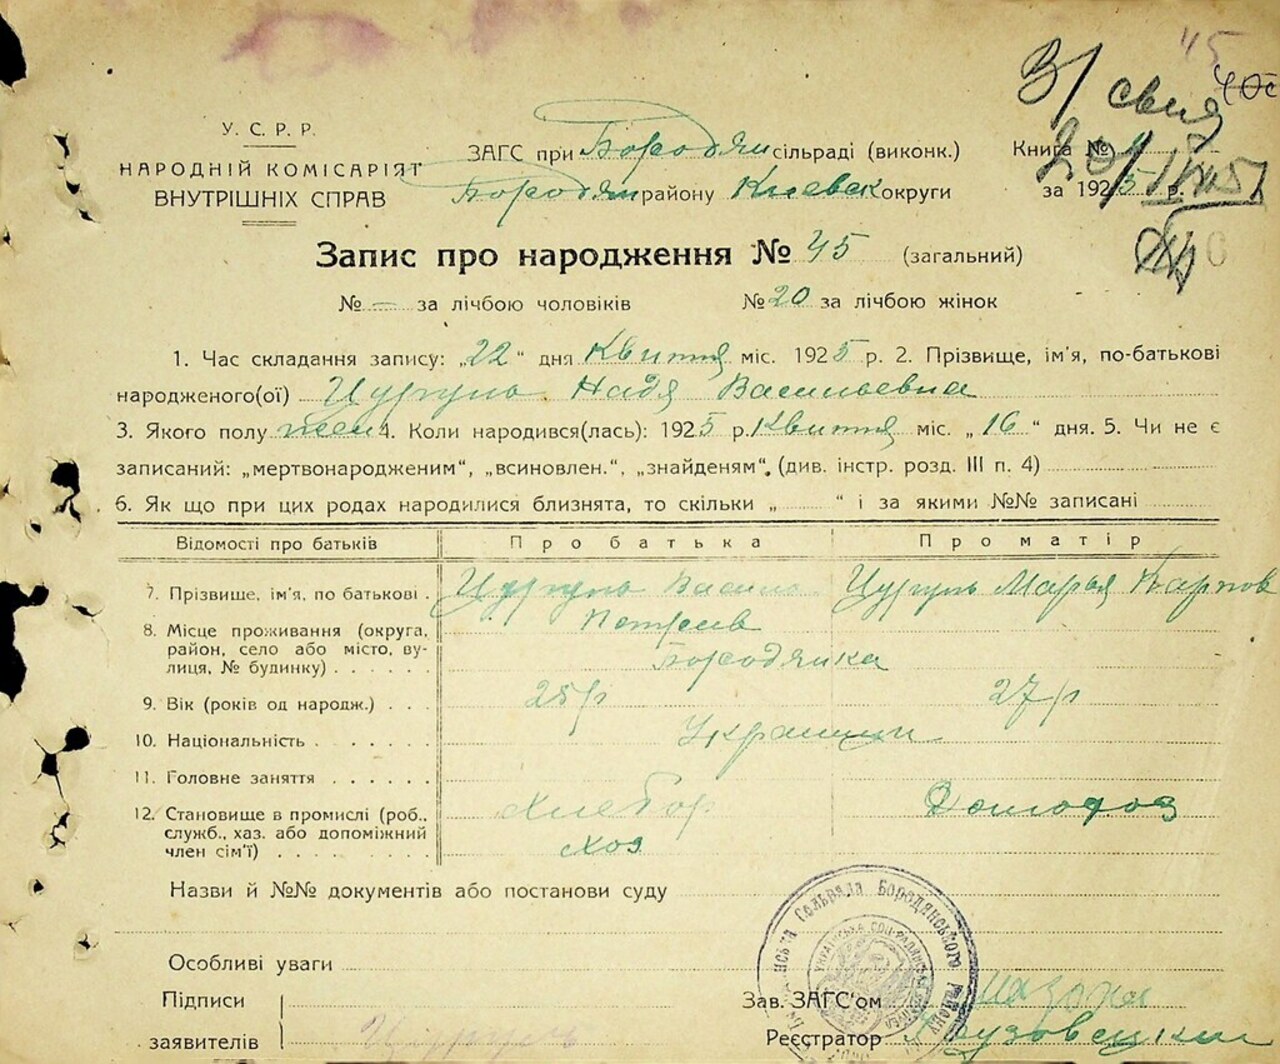 45
У. С. Р. Р.
НАРОДНІЙ КОМІСАРІЯТ
ВНУТРІШНІХ СПРАВ
ЗАГС при Бородян сільраді (виконк.)
Бородян району Киевск округи
Книга №
за 1925 р.
Запис про народження № 45 (загальний)
№ — за лічбою чоловіків № 20 за лічбою жінок
1. Час складання запису: „22“ дня Квиття міс. 1925 р. 2. Прізвище, ім'я, по-батькові
народженого(ої) Цургуль Надя Васильевна
3. Якого полу жен 4. Коли народився(лась): 1925 р. Квиття міс. „16“ дня. 5. Чи не є
записаний: „мертвонародженим“, „всиновлен.“, „знайденям“. (див. інстр. розд. III п. 4)
6. Як що при цих родах народилися близнята, то скільки „ “ і за якими №№ записані
Відомості про батьків Про батька Про матір
7. Прізвище, ім'я, по батькові . Цургуль Василь Цургуль Марья Карпов
Петрив
8. Місце проживання (округа,
район, село або місто, ву-
лиця, № будинку) . . . . . Бородянка
9. Вік (років од народж.) . . . 25 р 27 р
10. Національність . . . . . . Украинци
11. Головне заняття . . . . . .
12. Становище в промислі (роб.,
служб., хаз. або допоміжний
член сім'ї) . . . . . . . . .
Хлебор Домохоз
хоз
Назви й №№ документів або постанови суду
Особливі уваги
Підписи
заявителів
Зав. ЗАГС'ом
Реєстратор
Сільрада Бородянського району